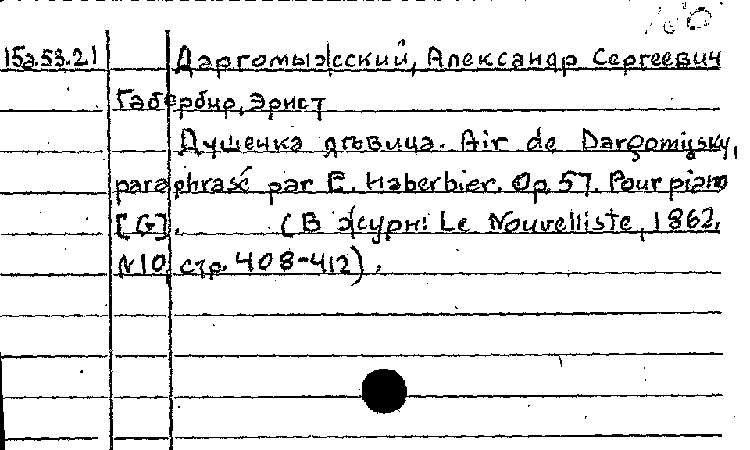 15а.53.21 Даргомыжский, Александр Сергеевич
Габербир, Эрист
Душенка дѣвица. Air de Dargomijsky,
paraphrasé par E. Haberbier. Op. 57. Pour piano
[G]. (В журн: Le Nouvelliste, 1862,
N10, стр. 408-412).